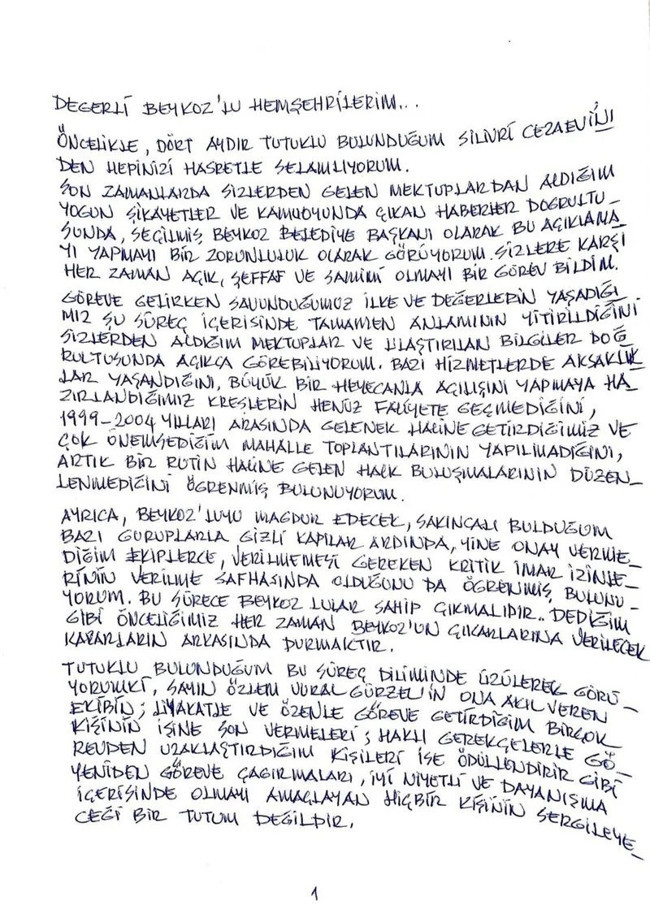 DEĞERLİ BEYKOZ'LU HEMŞEHRİLERİM...
ÖNCELİKLE, DÖRT AYDIR TUTUKLU BULUNDUĞUM SİLİVRİ CEZAEVİ'Nİ
DEN HEPİNİZİ HASRETLE SELAMLIYORUM.
SON ZAMANLARDA SİZLERDEN GELEN MEKTUPLARDAN ALDIĞIM
YOĞUN ŞİKAYETLER VE KAMUOYUNDA ÇIKAN HABERLER DOĞRULTU_
SUNDA, SEÇİLMİŞ BEYKOZ BELEDİYE BAŞKANI OLARAK BU AÇIKLAMA
YI YAPMAYI BİR ZORUNLULUK OLARAK GÖRÜYORUM. SİZLERE KARŞI
HER ZAMAN AÇIK, ŞEFFAF VE SAMİMİ OLMAYI BİR GÖREV BİLDİM.
GÖREVE GELİRKEN SAVUNDUĞUMUZ İLKE VE DEĞERLERİN YAŞADIĞI_
MIZ ŞU SÜREÇ İÇERİSİNDE TAMAMEN ANLAMININ YİTİRİLDİĞİNİ
SİZLERDEN ALDIĞIM MEKTUPLAR VE ULAŞTIRILAN BİLGİLER DOĞ_
RULTUSUNDA AÇIKÇA GÖREBİLİYORUM. BAZI HİZMETLERDE AKSAKLIK_
LAR YAŞANDIĞINI, BÜYÜK BİR HEYECANLA AÇILIŞINI YAPMAYA HA_
ZIRLANDIĞIMIZ KREŞLERİN HENÜZ FALİYETE GEÇMEDİĞİNİ,
1999-2004 YILLARI ARASINDA GELENEK HALİNE GETİRDİĞİMİZ VE
ÇOK ÖNEMSEDİĞİM MAHALLE TOPLANTILARININ YAPILMADIĞINI,
ARTIK BİR RUTİN HALİNE GELEN HALK BULUŞMALARININ DÜZEN_
LENMEDİĞİNİ ÖĞRENMİŞ BULUNUYORUM.
AYRICA, BEYKOZ'LUYU MAĞDUR EDECEK, SAKINCALI BULDUĞUM
BAZI GURUPLARLA GİZLİ KAPILAR ARDINDA, YİNE ONAY VERME_
DİĞİM EKİPLERCE, VERİLMEMESİ GEREKEN KRİTİK İMAR İZİNLE_
RİNİN VERİLME SAFHASINDA OLDUĞUNU DA ÖĞRENMİŞ BULUNU_
YORUM. BU SÜRECE BEYKOZ'LULAR SAHİP ÇIKMALIDIR.. DEDİĞİM
GİBİ ÖNCELİĞİMİZ HER ZAMAN BEYKOZ'UN ÇIKARLARINA VERİLECEK
KARARLARIN ARKASINDA DURMAKTIR.
TUTUKLU BULUNDUĞUM BU SÜREÇ DİLİMİNDE ÜZÜLEREK GÖRÜ_
YORUMKİ, SAYIN ÖZLEM VURAL GÜRZEL'İN ONA AKIL VEREN
EKİBİN; LİYAKATLE VE ÖZENLE GÖREVE GETİRDİĞİM BİRÇOK
KİŞİNİN İŞİNE SON VERMELERİ; HAKLI GEREKÇELERLE GÖ_
REVDEN UZAKLAŞTIRDIĞIM KİŞİLERİ İSE ÖDÜLLENDİRİR GİBİ
YENİDEN GÖREVE ÇAĞIRMALARI, İYİ NİYETLİ VE DAYANIŞMA
İÇERİSİNDE OLMAYI AMAÇLAYAN HİÇBİR KİŞİNİN SERGİLEYE_
CEĞİ BİR TUTUM DEĞİLDİR.
1